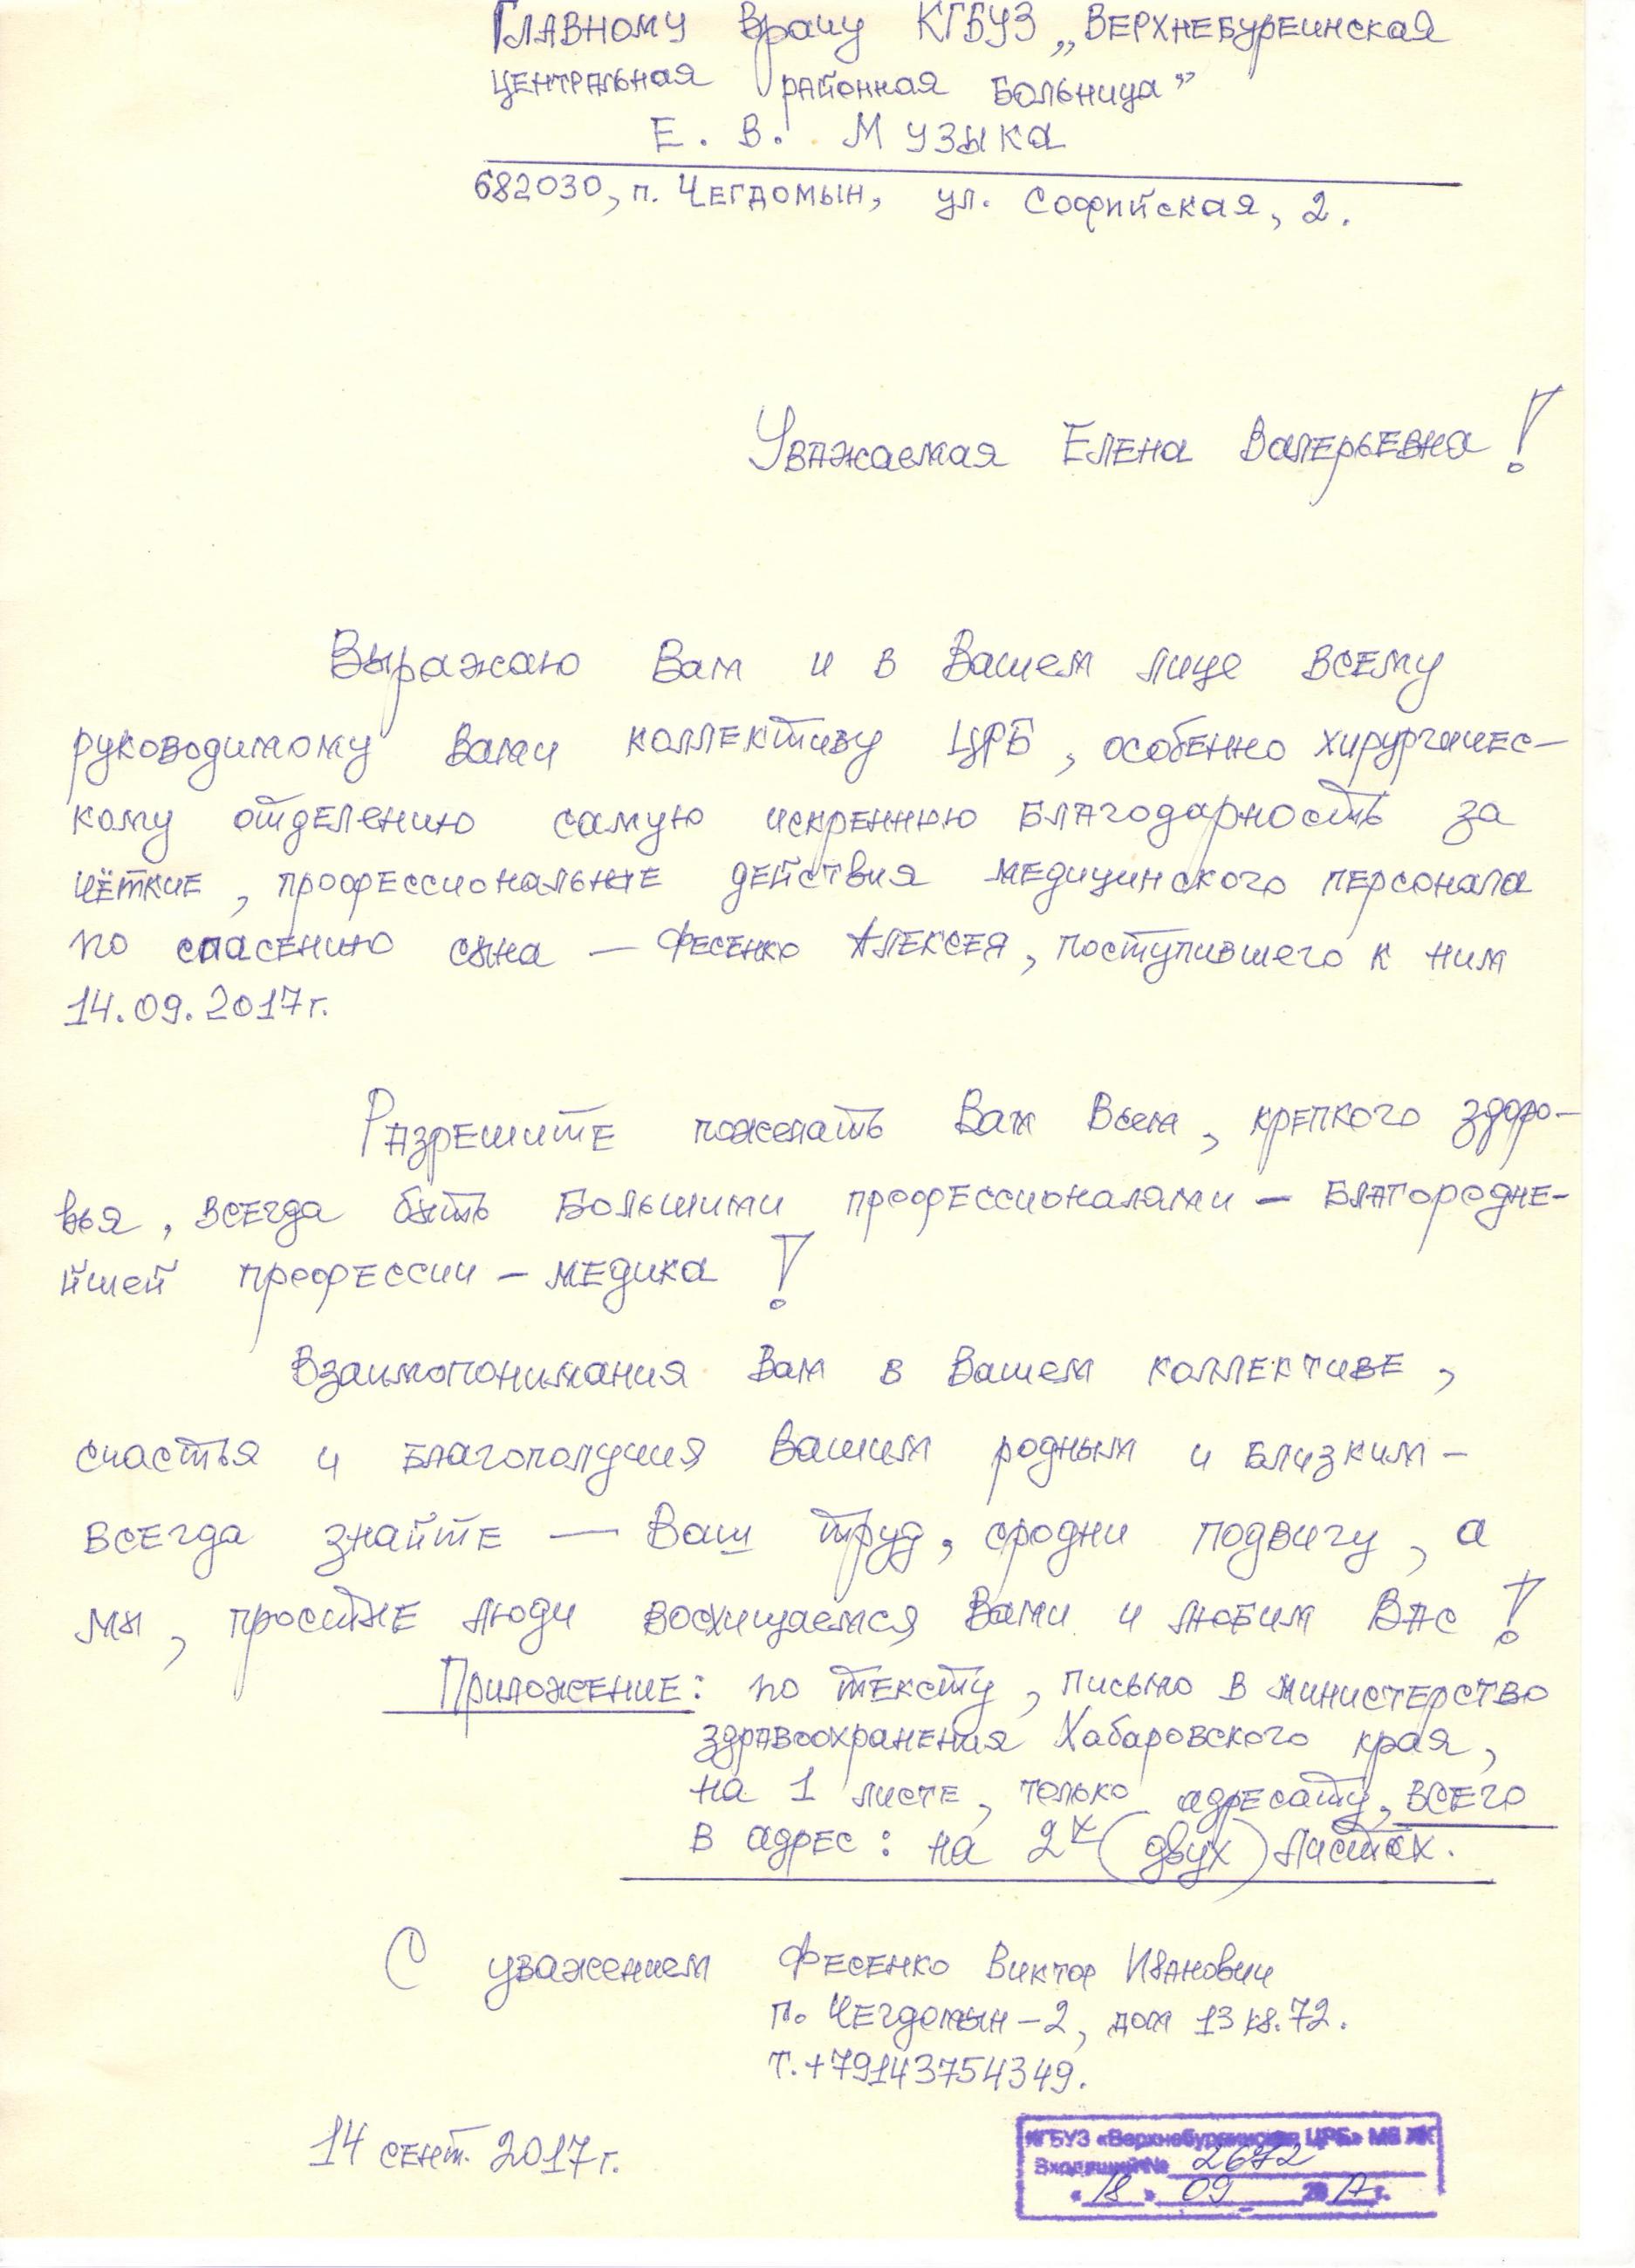 Главному врачу КГБУЗ „Верхнебуреинская
центральная районная больница”
Е. В. Музыка
682030, п. Чегдомын, ул. Софийская, 2.
Уважаемая Елена Валерьевна!
Выражаю Вам и в Вашем лице всему
руководимому Вами коллективу ЦРБ, особенно хирургичес-
кому отделению самую искреннюю благодарность за
чёткие, профессиональные действия медицинского персонала
по спасению сына — Фесенко Алексея, поступившего к ним
14.09.2017г.
Разрешите пожелать Вам Всем, крепкого здоро-
вья, всегда быть большими профессионалами – благородне-
йшей профессии – медика!
Взаимопонимания Вам в Вашем коллективе,
счастья и благополучия Вашим родным и близким –
всегда знайте — Ваш труд, сродни подвигу, а
мы, простые люди восхищаемся Вами и любим Вас!
Приложение: по тексту, письмо в министерство
здравоохранения Хабаровского края,
на 1 листе, только адресату, всего
в адрес: на 2х (двух) листах.
С уважением Фесенко Виктор Иванович
п. Чегдомын-2, дом 13 кв.72.
т.+79143754349.
14 сент. 2017г.
КГБУЗ «Верхнебуреинская ЦРБ» МЗ ХК
Входящий № 2672
« 18 » 09 2017г.